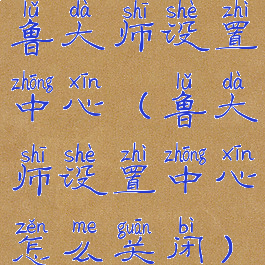 lǔ dà shī shè zhì
鲁大师设置
zhōng xīn lǔ dà
中心（鲁大
shī shè zhì zhōng xīn
师设置中心
zěn me guān bì
怎么关闭）